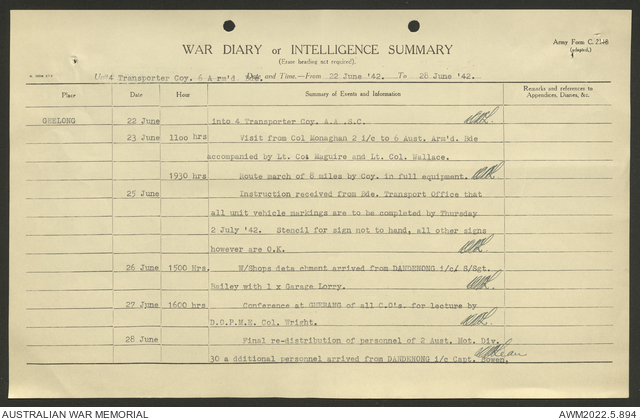 Army Form C. 2118
(adapted.)
WAR DIARY or INTELLIGENCE SUMMARY
(Erase heading not required).
Unit 4 Transporter Coy. 6 Arm'd. Bde. Date and Time.—From 22 June '42. To 28 June '42.
Place Date Hour Summary of Events and Information Remarks and references to Appendices, Diaries, &c.
GEELONG 22 June into 4 Transporter Coy. A.A.S.C.
23 June 1100 hrs Visit from Col Monaghan 2 i/c to 6 Aust. Arm'd. Bde
accompanied by Lt. Col Maguire and Lt. Col. Wallace.
1930 hrs Route march of 8 miles by Coy. in full equipment.
25 June Instruction received from Bde. Transport Office that
all unit vehicle markings are to be completed by Thursday
2 July '42. Stencil for sign not to hand, all other signs
however are O.K.
26 June 1500 Hrs. W/Shops deta chment arrived from DANDENONG i/c S/Sgt.
Bailey with 1 x Garage Lorry.
27 June 1600 hrs Conference at GHERANG of all C.O's. for lecture by
D.O.P.M.E. Col. Wright.
28 June Final re-distribution of personnel of 2 Aust. Mot. Div.
30 a dditional personnel arrived from DANDENONG i/c Capt. Bowen.
AUSTRALIAN WAR MEMORIAL AWM2022.5.894